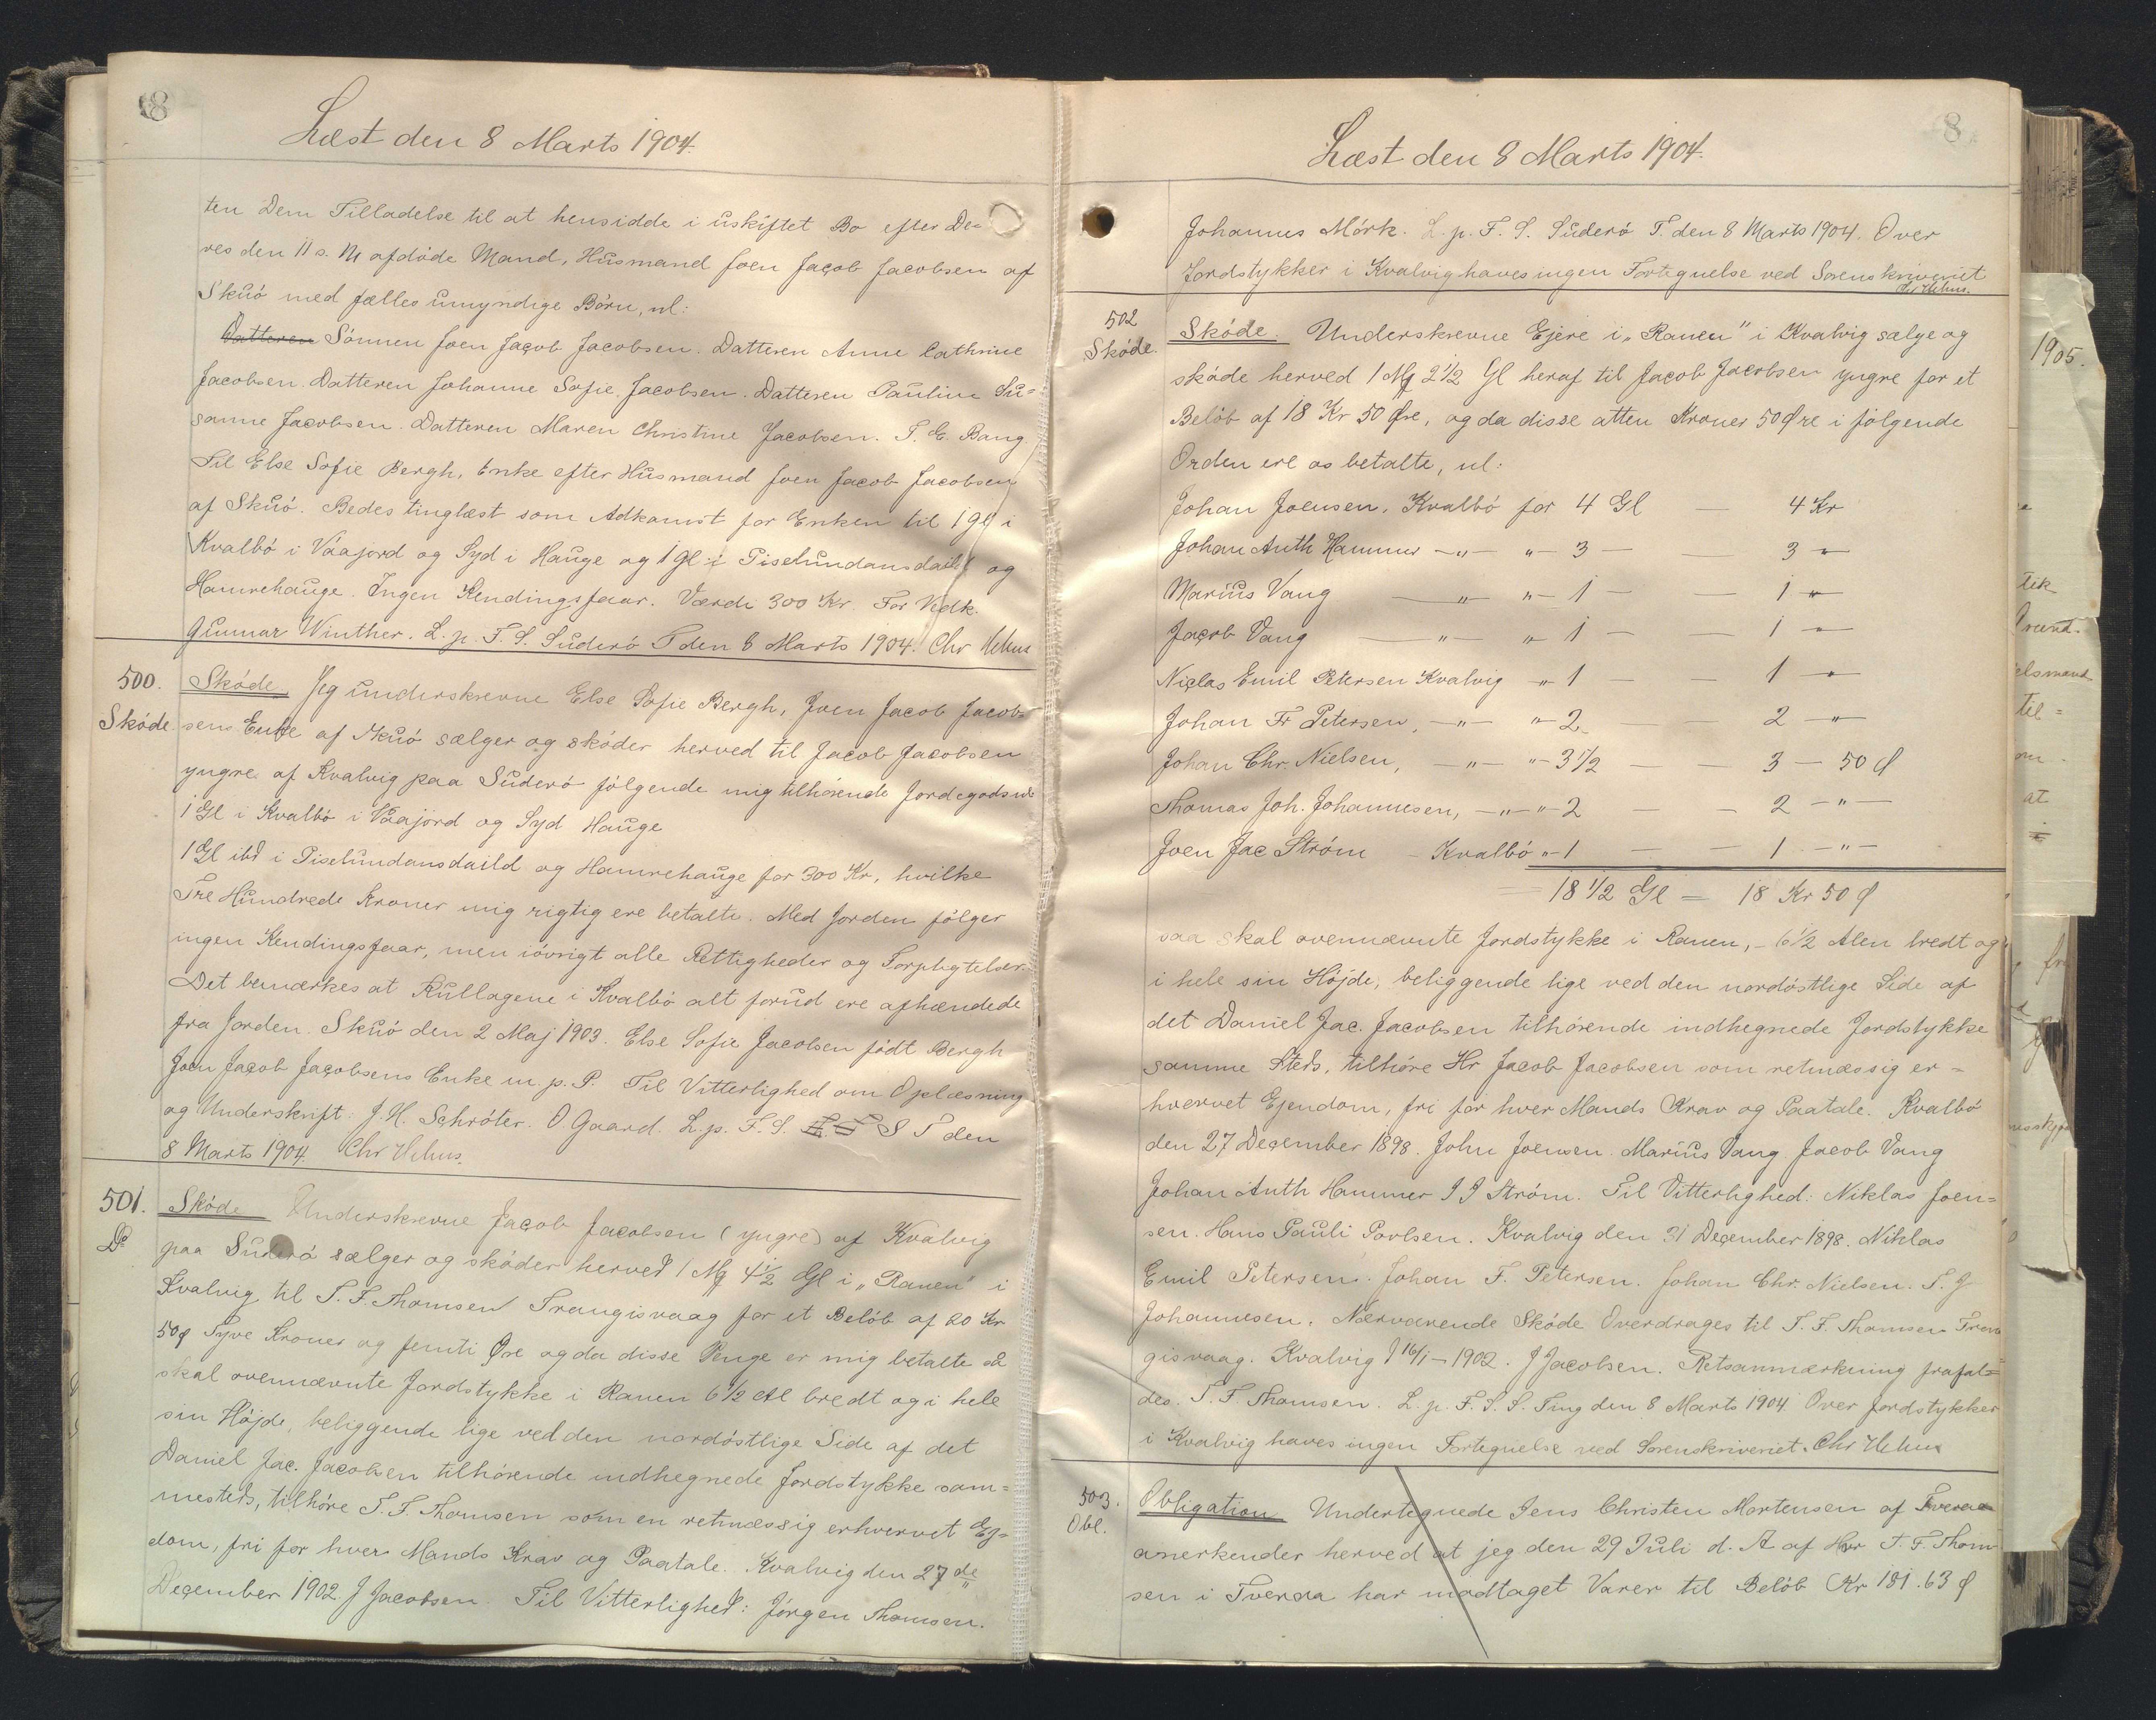 8
Læst den 8 Marts 1904.
ten Dem Tilladelse til at hensidde i uskiftet Bo efter De=
res den 11 s. M afdöde Mand, Husmand Joen Jacob Jacobsen af
Skuö med fælles umyndige Börn, nl:
Datteren Sönnen Joen Jacob Jacobsen. Datteren Anne Cathrine
Jacobsen. Datteren Johanne Sofie Jacobsen. Datteren Pauline Su=
sanne Jacobsen. Datteren Maren Christine Jacobsen. T. E. Bang.
Til Else Sofie Bergh, Enke efter Husmand Joen Jacob Jacobsen
af Skuö. Bedes tinglæst som Adkomst for Enken til 1 Gl i
Kvalbö i Váajord og Syd i Hauge og 1 Gl i Piselundansdaild og
Hamrehauge. Ingen Kendingsfaar. Værdi 300 Kr. For Vedk.
Gunnar Winther. L. p. F. S. Suderö T den 8 Marts 1904. Chr Hehus
500.
Sköde
Sköde. Jeg underskrevne Else Sofie Bergh, Joen Jacob Jacob-
sens Enke af Skuö sælger og sköder herved til Jacob Jacobsen
yngre af Kvalvig paa Suderö fölgende mig tilhörende Jordegods nl
1 Gl i Kvalbö i Váajord og Syd Hauge
1 Gl ibd i Piselundansdaild og Hamrehauge for 300 Kr, hvilke
Tre Hundrede Kroner mig rigtig ere betalte. Med Jorden fölger
ingen Kendingsfaar, men iövrigt alle Rettigheder og Forpligtelser.
Det bemærkes at Kullagene i Kvalbö alt forud ere afhændede
fra Jorden. Skuö den 2 Maj 1903. Else Sofie Jacobsen födt Bergh
Joen Jacob Jacobsens Enke m. p. P. Til Vitterlighed om Oplæsning
og Underskrift: J. H. Schröter. O Gaard. L. p. F. S. S T den
8 Marts 1904. Chr Hehus.
501.
Do
Sköde Underskrevne Jacob Jacobsen (yngre) af Kvalvig
paa Suderö sælger og sköder herved 1 Mf 4½ Gl i „Ranen" i
Kvalvig til T. F. Thomsen Trangisvaag for et Belöb af 20 Kr
50 ø Tyve Kroner og femti Øre og da disse Penge er mig betalte så
skal ovennævnte Jordstykke i Ranen 6½ Al bredt og i hele
sin Höjde, beliggende lige ved den nordöstlige Side af det
Daniel Jac. Jacobsen tilhörende indhegnede Jordstykke sam=
mesteds, tilhöre T. F. Thomsen som en retmæssig erhvervet Ej=
dom, fri for hver Mands Krav og Paatale. Kvalvig den 27 de
December 1902. J Jacobsen. Til Vitterlighed: Jörgen Thomsen.
8
Læst den 8 Marts 1904.
Johannes Mörk. L. p. F. S. Suderö T. den 8 Marts 1904. Over
Jordstykker i Kvalvig haves ingen Fortegnelse ved Sorenskriveriet
Chr Hehus.
502
Sköde.
Sköde. Underskrevne Ejere i „Ranen" i Kvalvig sælge og
sköde herved 1 Mf 2½ Gl heraf til Jacob Jacobsen yngre for et
Belöb af 18 Kr 50 Øre, og da disse atten Kroner 50 Øre i fölgende
Orden ere os betalte, nl:
Johan Joensen, Kvalbö for 4 Gl — 4 Kr
Johan Anth Hammer —„— „— 3 — — 3 „—
Marius Vang —„— „— 1 — — 1 „—
Jacob Vang —„— „— 1 — — 1 „—
Niclas Emil Petersen Kvalvig „— 1 — — 1 „—
Johan Fr Petersen, —„— „— 2 — — 2 —„—
Johan Chr. Nielsen, —„— „— 3½ — — 3 — 50 ø
Thomas Joh. Johannesen, —„— „— 2 — — 2 —„—
Joen Jac Ström — Kvalbö „— 1 — — 1 —„—
18½ Gl — 18 Kr 50 ø
saa skal ovennævnte Jordstykke i Ranen, — 6½ Alen bredt og
i hele sin Höjde, beliggende lige ved den nordöstlige Side af
det Daniel Jac. Jacobsen tilhörende indhegnede Jordstykke
samme Steds, tilhöre Hr Jacob Jacobsen som retmæssig er=
hvervet Ejendom, fri for hver Mands Krav og Paatale. Kvalbö
den 27 December 1898. John Joensen. Marius Vang. Jacob Vang
Johan Anth Hammer J J Ström. Til Vitterlighed: Niklas Joen=
sen. Hans Pauli Poulsen. Kvalvig den 31 December 1898. Niklas
Emil Petersen. Johan F. Petersen. Johan Chr. Nielsen. T. J
Johannesen. Nærværende Sköde Overdrages til T. F. Thomsen Tran
gisvaag. Kvalvig d 16/1 – 1902. J Jacobsen. Retsanmærkning frafal=
des. T. F. Thomsen. L. p. F. S. S. Ting den 8 Marts 1904. Over Jordstykker
i Kvalvig haves ingen Fortegnelse ved Sorenskriveriet. Chr Hehus
503.
Obl.
Obligation Undertegnede Jens Christen Mortensen af Tveraa
anerkender herved at jeg den 29 Juli d. A af Herr T. F. Thom
sen i Tveraa har modtaget Varer til Belöb Kr 181.63 ø
1905.
tik
elsmand
til=
at